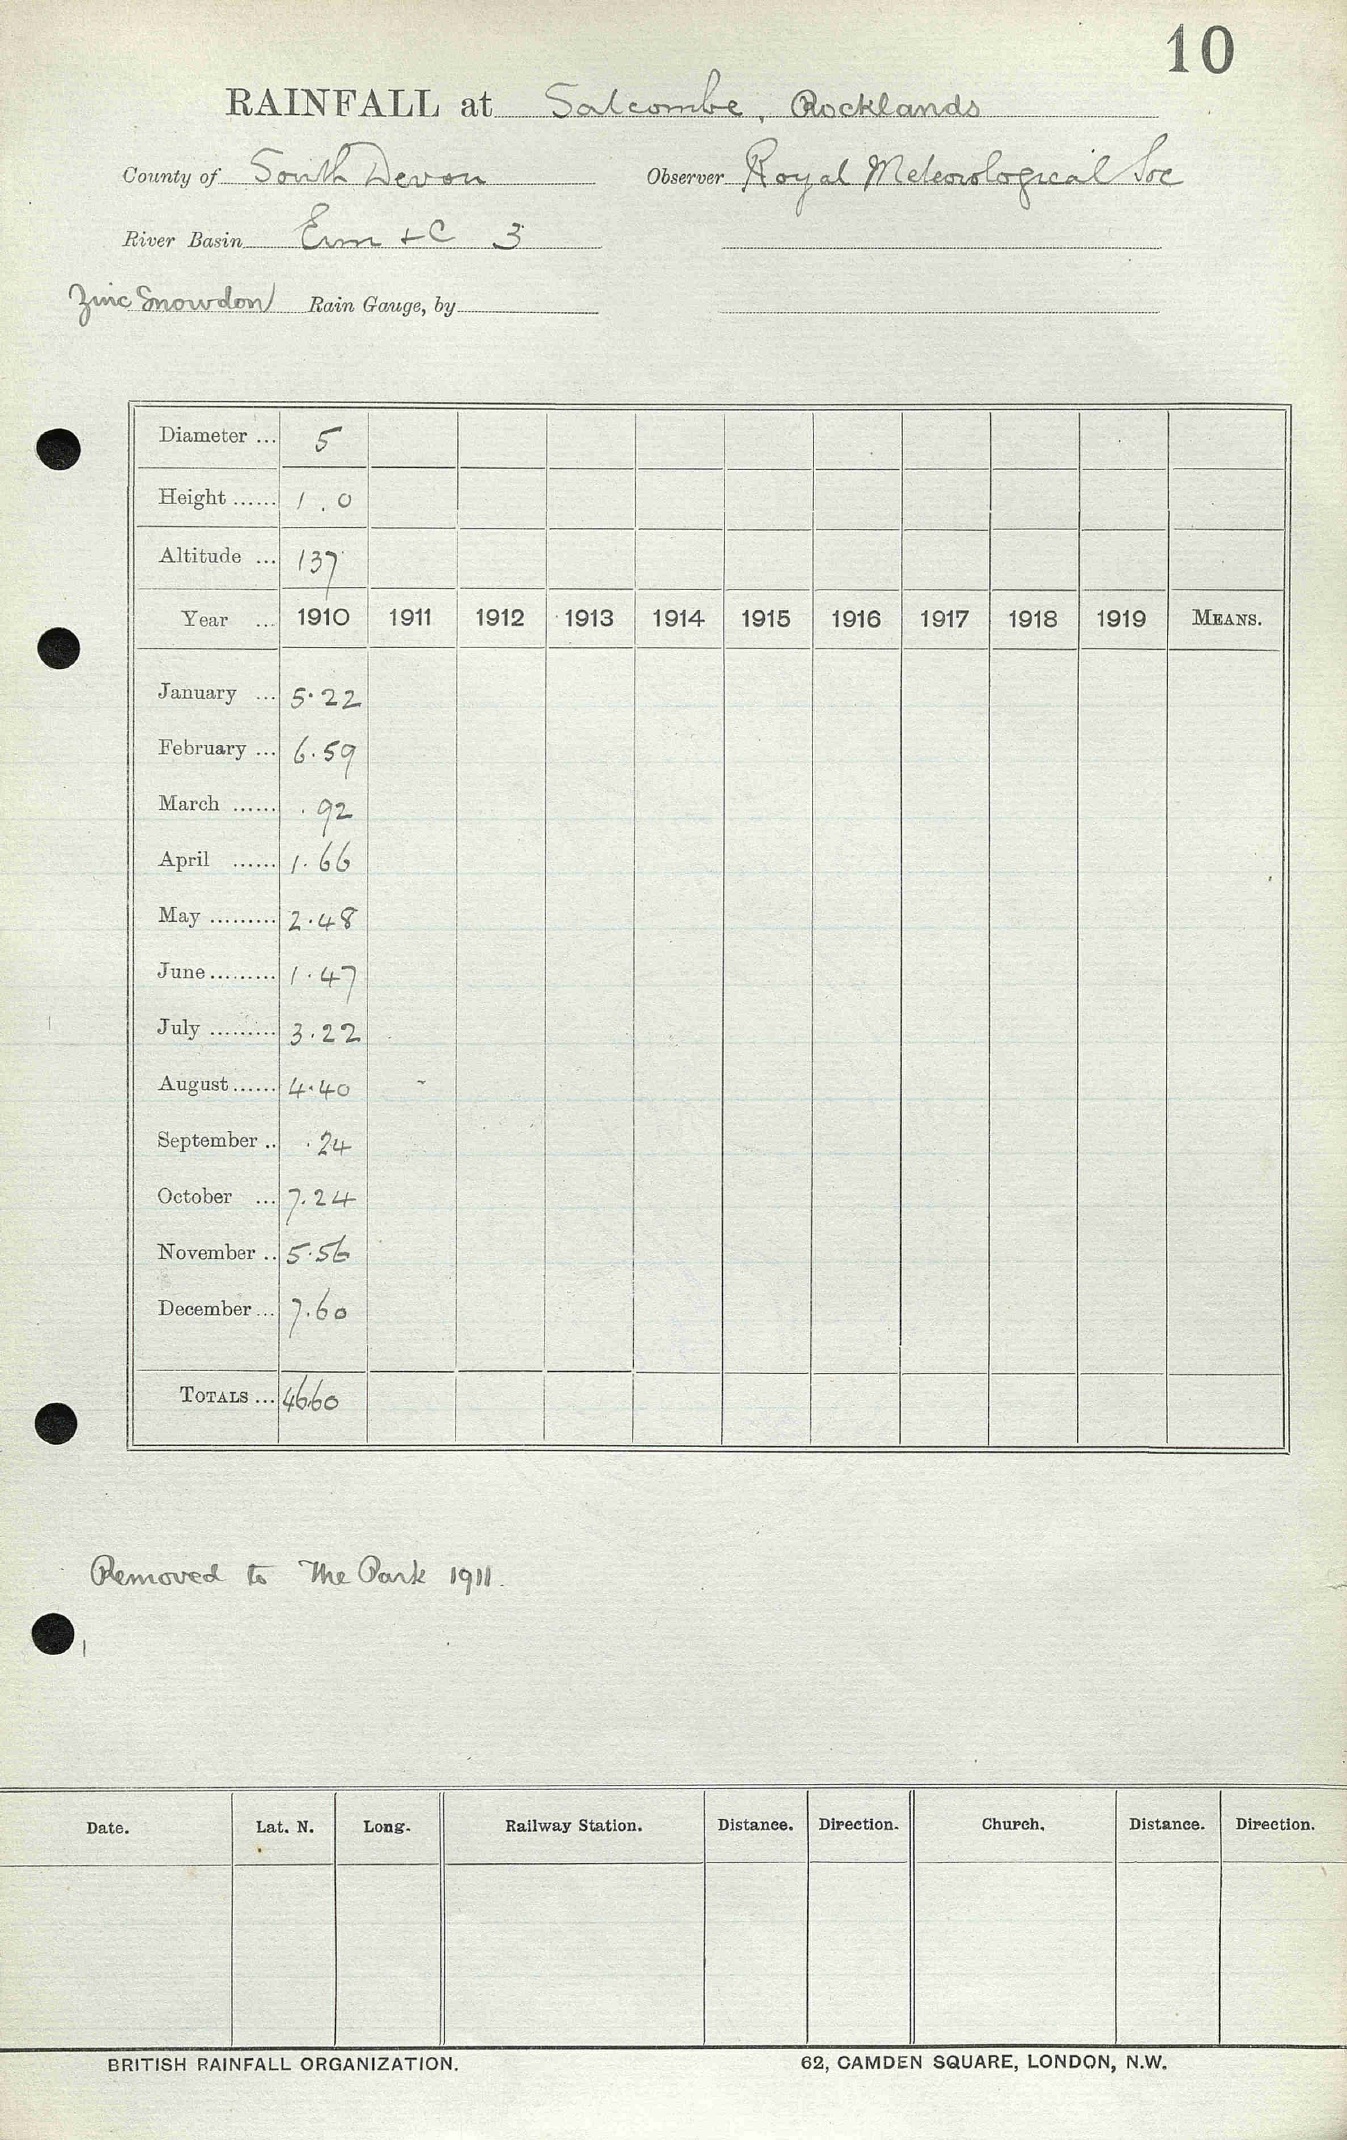 10
RAINFALL at Salcombe, Rocklands
County of South Devon Observer Royal Meteorological Soc
River Basin Erm & C 3
Zinc Snowdon Rain Gauge, by
Diameter ... 5
Height ...... 1.0
Altitude ... 137
Year ... 1910 1911 1912 1913 1914 1915 1916 1917 1918 1919 MEANS.
January ... 5.22
February ... 6.59
March ...... .92
April ...... 1.66
May ......... 2.48
June ......... 1.47
July ......... 3.22
August ...... 4.40
September .. .24
October ... 7.24
November .. 5.56
December ... 7.60
TOTALS ... 46.60
Removed to The Park 1911.
Date. Lat. N. Long. Railway Station. Distance. Direction. Church. Distance. Direction.
BRITISH RAINFALL ORGANIZATION. 62, CAMDEN SQUARE, LONDON, N.W.